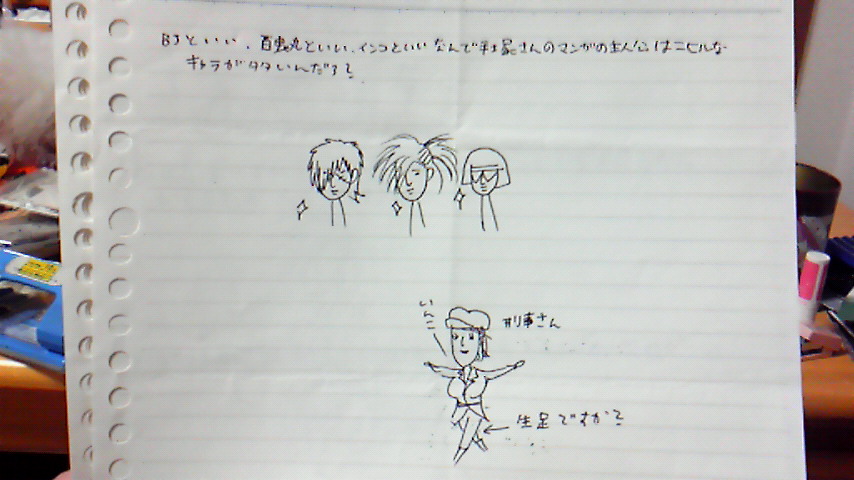 BJといい、百鬼丸といい、インコといいなんで手塚さんのマンガの主人公はニヒルな
キャラがタタいんだろ?
いんこ
刑事さん
生足ですか?